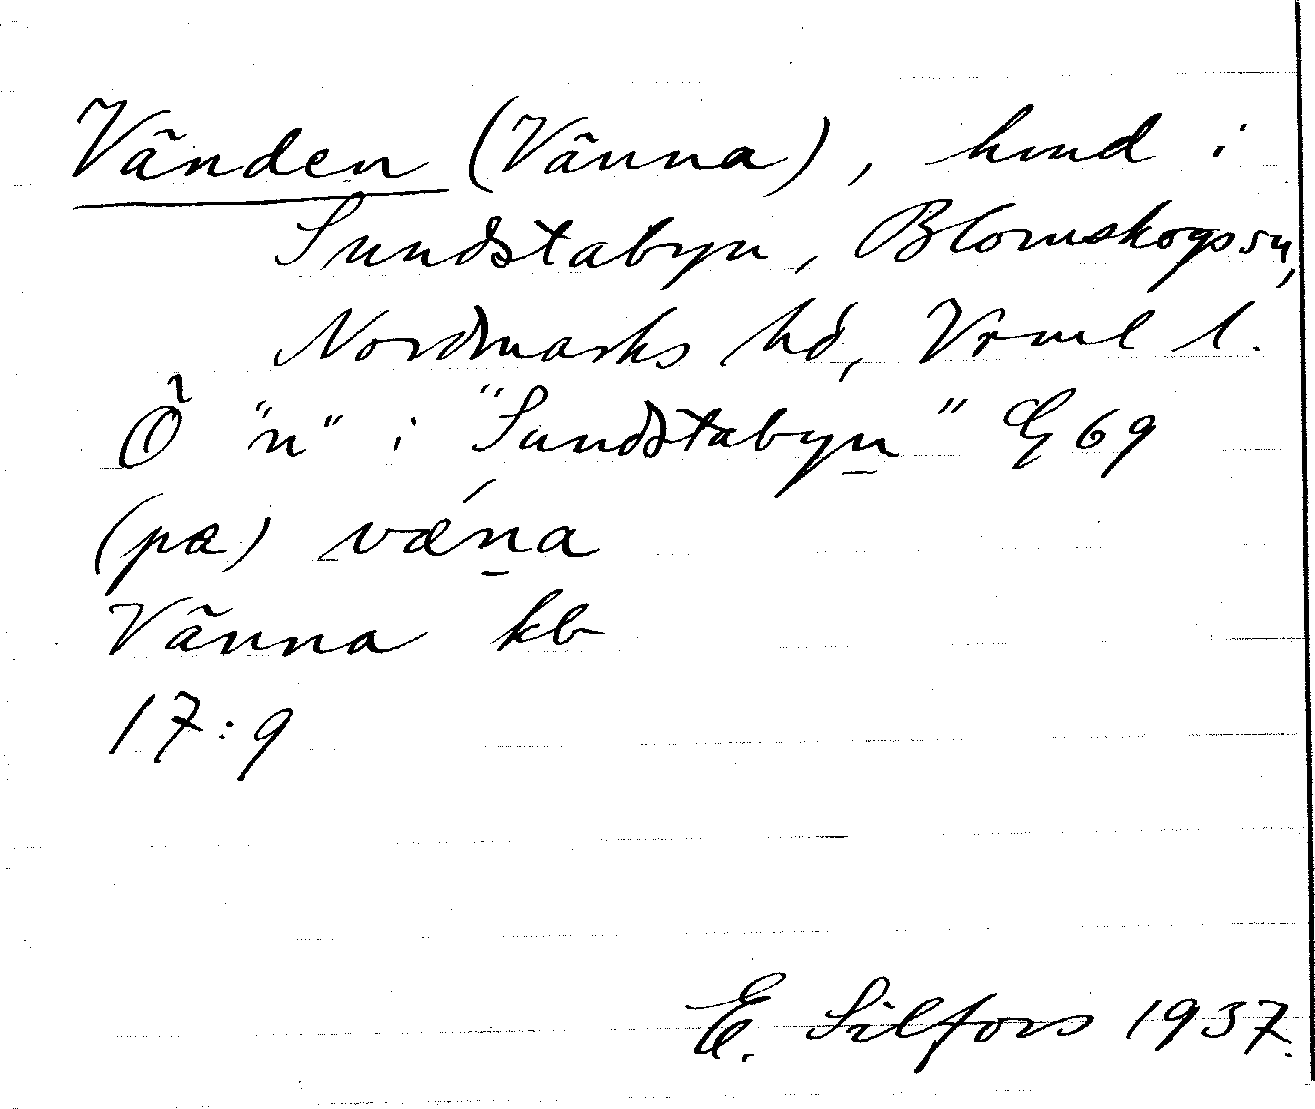 Vänden (Vänna), hmd i
Sundstabyn, Blomskogs sn,
Nordmarks hd, Vrml l.
Ö "n" i "Sundstabyn" G 69
(pa) væ̂́na
Vänna kb
17:9
E. Silfors 1937.